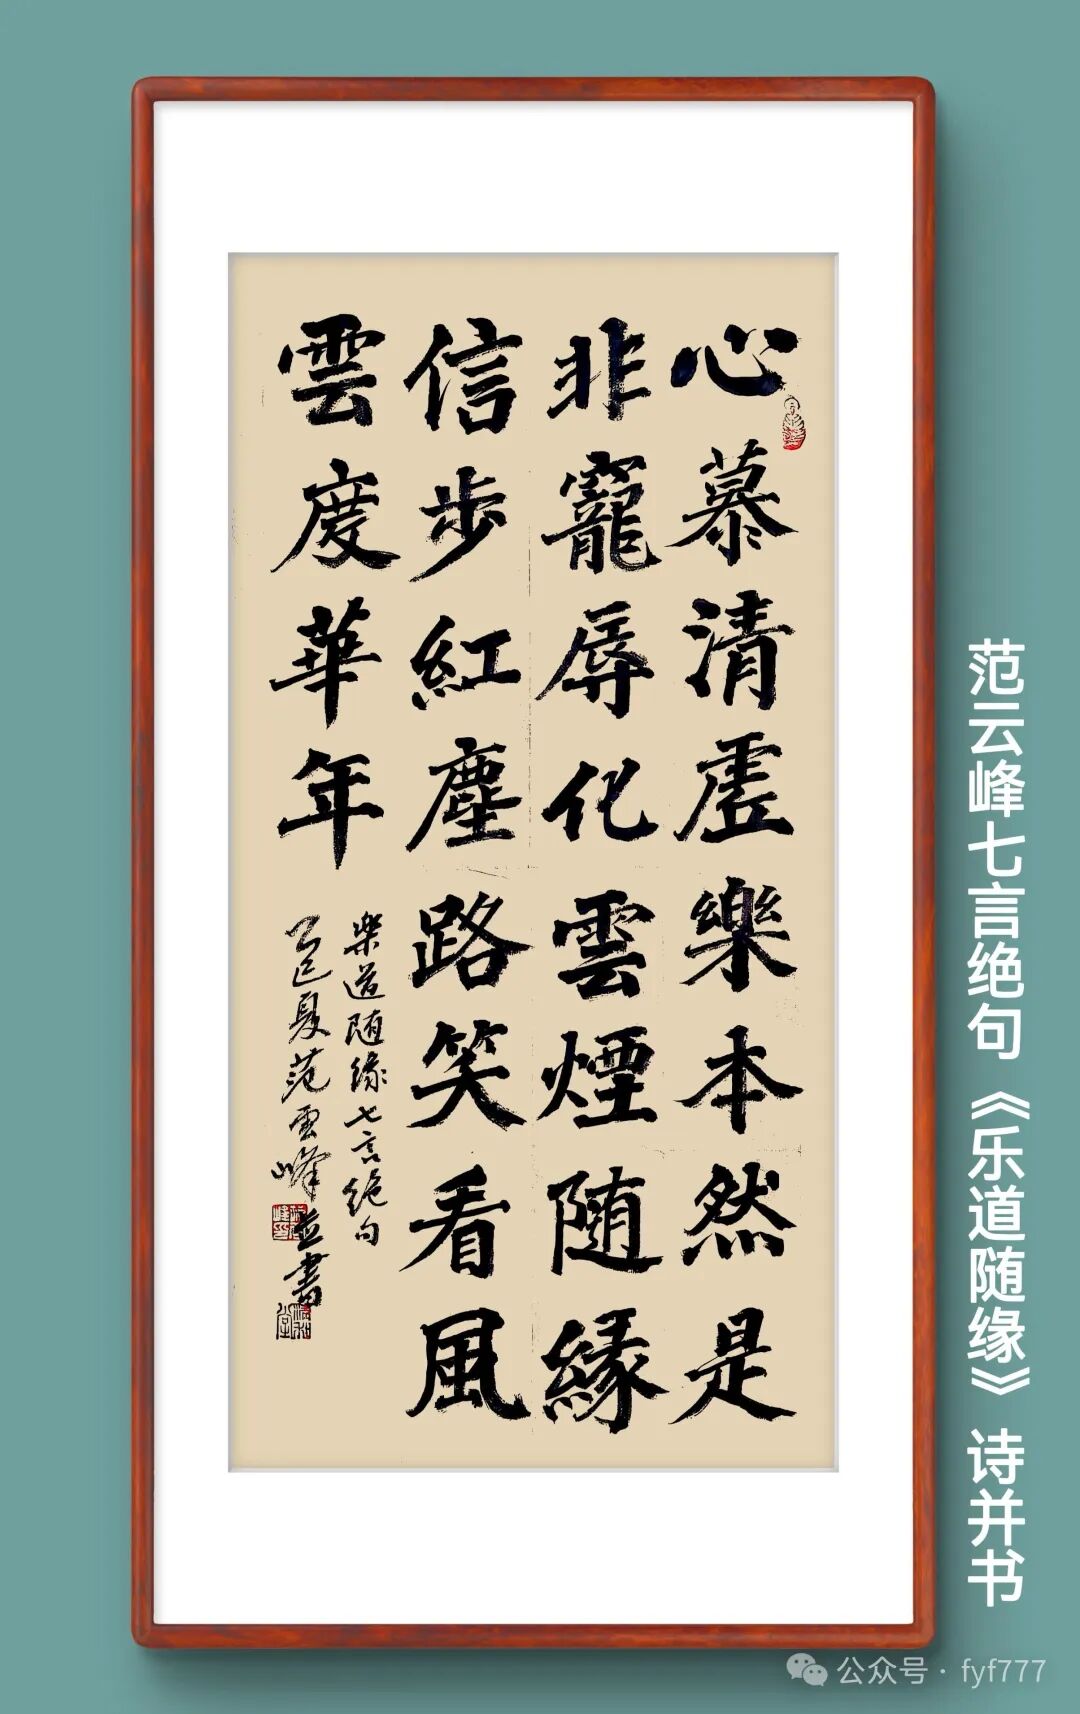 心慕清虛樂本然是
非寵辱化雲煙随緣
信步紅塵路笑看風
雲度華年
樂道随緣七言绝句
乙巳夏范雲峰並書
范云峰七言绝句《乐道随缘》诗并书
公众号·fyf777